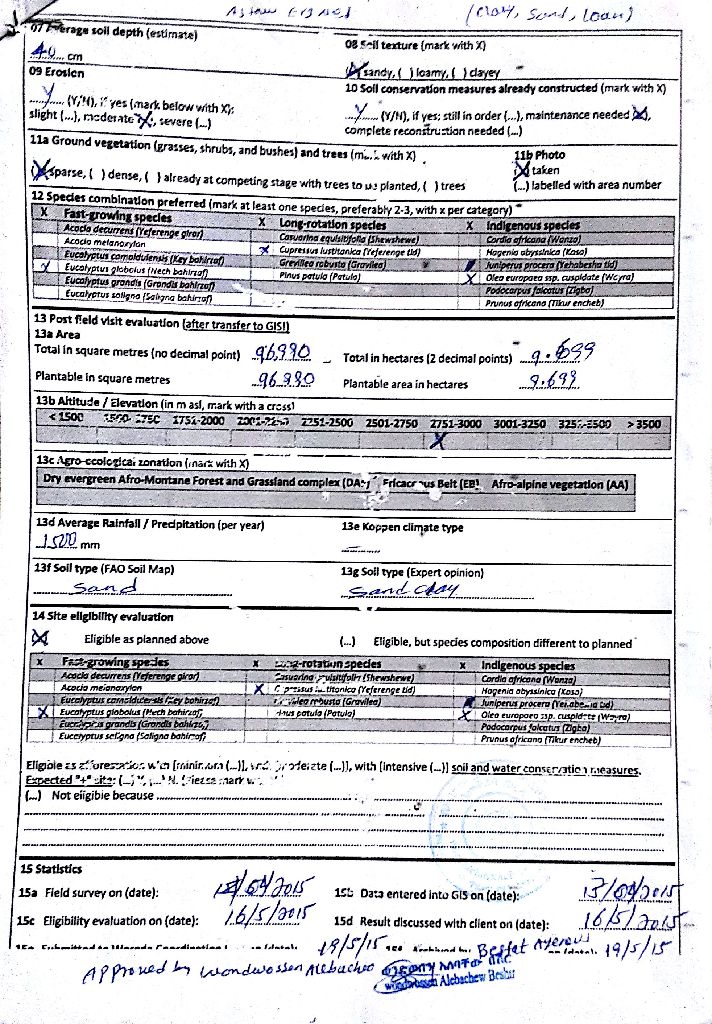 (Clay, Sand, Loan)
07 Average soil depth (estimate)
40 cm
08 Soil texture (mark with X)
(X) sandy, ( ) loamy, ( ) clayey
09 Erosion
Y (Y/N), if yes (mark below with X):
slight (...), moderate (X), severe (...)
10 Soil conservation measures already constructed (mark with X)
Y (Y/N), if yes: still in order (...), maintenance needed (X),
complete reconstruction needed (...)
11a Ground vegetation (grasses, shrubs, and bushes) and trees (mark with X)
(X) sparse, ( ) dense, ( ) already at competing stage with trees to be planted, ( ) trees
11b Photo
(X) taken
(...) labelled with area number
12 Species combination preferred (mark at least one species, preferably 2-3, with x per category)
X Fast-growing species X Long-rotation species X Indigenous species
Acacia decurrens (Yeferenge girar) Casuarina equisitifolia (Shewshewe) Cordia africana (Wanza)
Acacia melanoxylon X Cupressus lusitanica (Yeferenge tid) Hagenia abyssinica (Koso)
Eucalyptus camaldulensis (Key bahirzaf) Grevillea robusta (Gravilea) Juniperus procera (Yehabesha tid)
X Eucalyptus globolus (Nech bahirzaf) Pinus patula (Patula) X Olea europaea ssp. cuspidate (Wayra)
Eucalyptus grandis (Grandis bahirzaf) Podocarpus falcatus (Zigba)
Eucalyptus saligna (Saligna bahirzaf) Prunus africana (Tikur encheb)
13 Post field visit evaluation (after transfer to GIS!)
13a Area
Total in square metres (no decimal point) 96990 Total in hectares (2 decimal points) 9.699
Plantable in square metres 96990 Plantable area in hectares 9.699
13b Altitude / Elevation (in m asl, mark with a cross)
< 1500 1500-1750 1751-2000 2001-2250 2251-2500 2501-2750 2751-3000 3001-3250 3251-3500 > 3500
X
13c Agro-ecological zonation (mark with X)
Dry evergreen Afro-Montane Forest and Grassland complex (DAF) Ericaceous Belt (EB) Afro-alpine vegetation (AA)
13d Average Rainfall / Precipitation (per year)
1500 mm
13e Koppen climate type
13f Soil type (FAO Soil Map)
Sand
13g Soil type (Expert opinion)
Sand clay
14 Site eligibility evaluation
(X) Eligible as planned above (...) Eligible, but species composition different to planned
x Fast-growing species x Long-rotation species x Indigenous species
Acacia decurrens (Yeferenge girar) Casuarina equisitifolia (Shewshewe) Cordia africana (Wanza)
Acacia melanoxylon X Cupressus lusitanica (Yeferenge tid) Hagenia abyssinica (Koso)
Eucalyptus camaldulensis (Key bahirzaf) Grevillea robusta (Gravilea) Juniperus procera (Yehabesha tid)
X Eucalyptus globolus (Nech bahirzaf) Pinus patula (Patula) X Olea europaea ssp. cuspidate (Wayra)
Eucalyptus grandis (Grandis bahirzaf) Podocarpus falcatus (Zigba)
Eucalyptus saligna (Saligna bahirzaf) Prunus africana (Tikur encheb)
Eligible as afforestation with [minimum (...)], [moderate (...)], with [intensive (...)] soil and water conservation measures.
(...) Not eligible because
15 Statistics
15a Field survey on (date): 12/09/2015 15b Data entered into GIS on (date): 13/09/2015
15c Eligibility evaluation on (date): 16/5/2015 15d Result discussed with client on (date): 16/5/2015
19/5/15 19/5/15
Approved by Wondwossen Alebachew
Wondwossen Alebachew Beshir